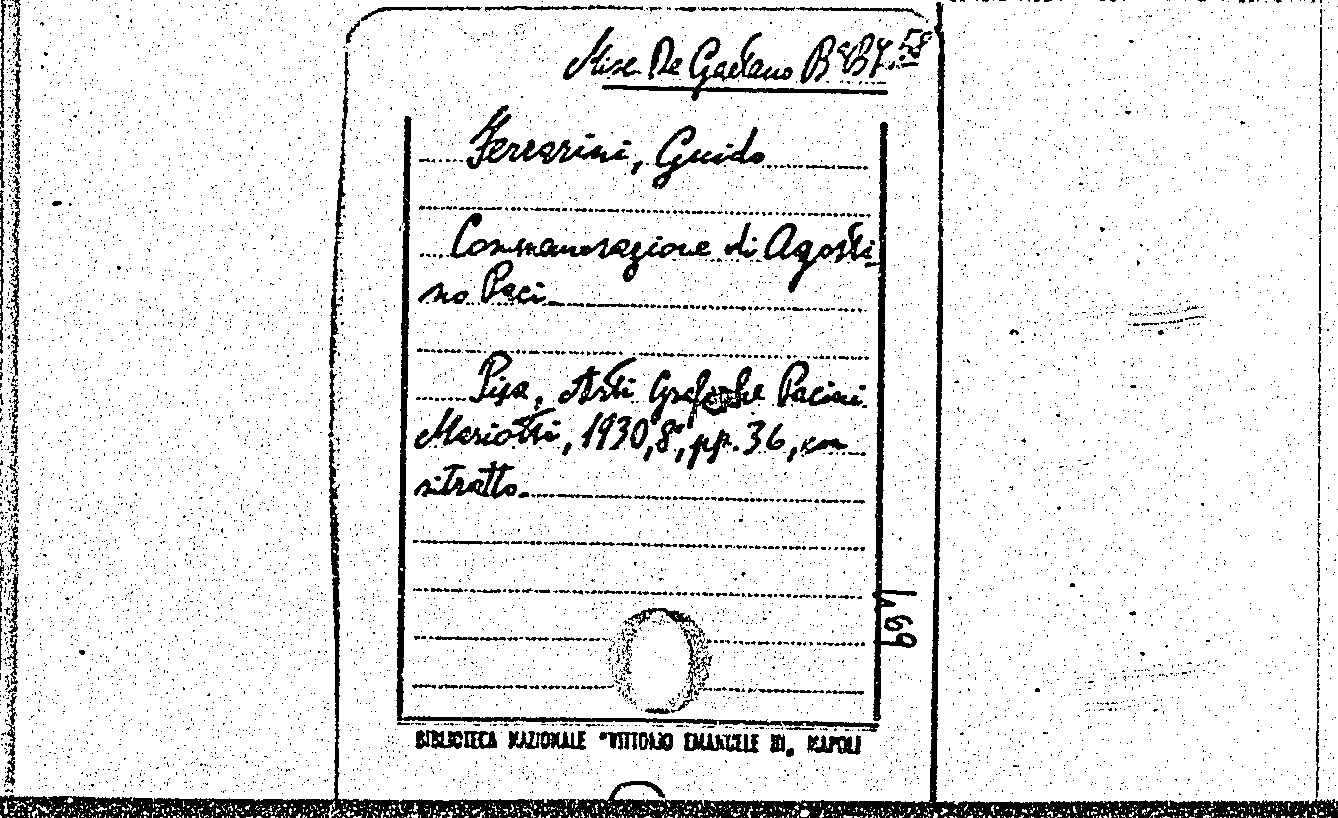 Misc. De Gaetano Bª B7.58
Ferrarini, Guido
Commemorazione di Agosti-
no Paci.
Pisa, Arti Grafiche Pacini
Mariotti, 1930, 8°, pp. 36, con
ritratto.
V 69
BIBLIOTECA NAZIONALE "VITTORIO EMANUELE III" NAPOLI